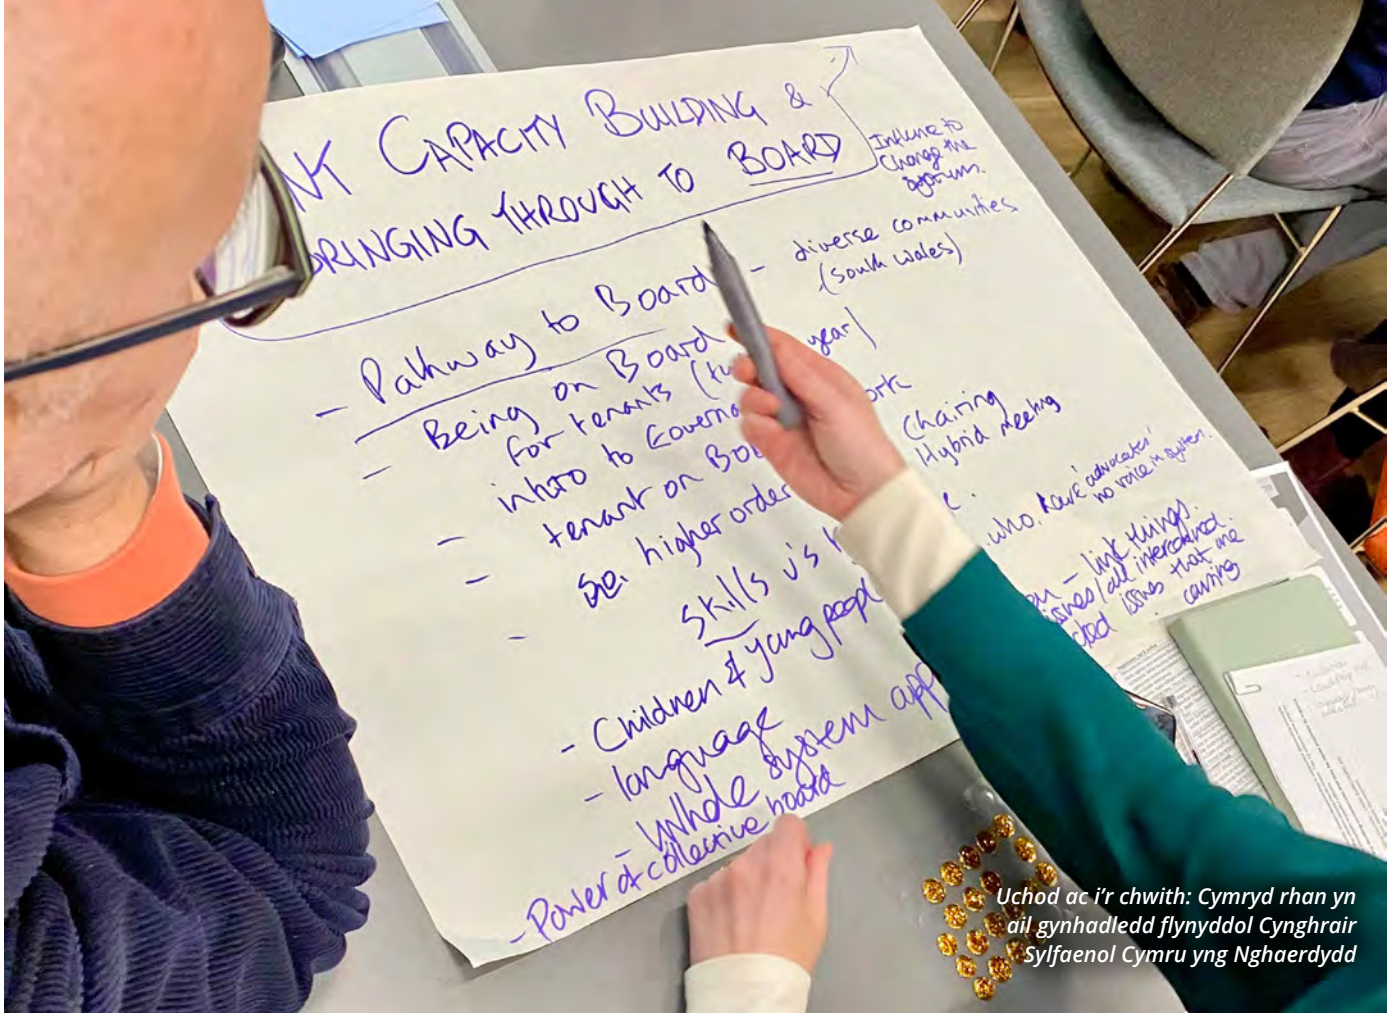 NT CAPACITY BUILDING &
BRINGING THROUGH TO BOARD
Influence to
Change the
system.
- Pathway to Board - diverse communities
(South Wales)
- Being on Board
for tenants year)
intro to Governa ork
- tenant on Boa Chairing
Hybrid meeting
- higher order
- Skills v's
who have 'advocates'
no voice in system.
- Children & young people
- language
- Whole system app
- link things
issues/all interconnected
issues that are
causing
- Power of collective board
Uchod ac i'r chwith: Cymryd rhan yn
ail gynhadledd flynyddol Cynghrair
Sylfaenol Cymru yng Nghaerdydd